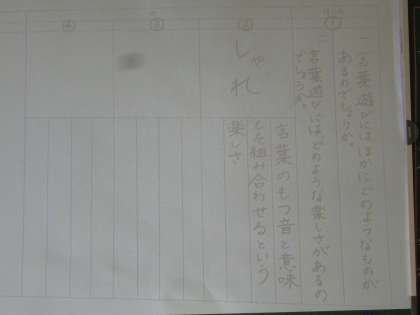 ①
一 言葉遊びにはほかにどのようなものが
あるのでしょうか。
二 言葉遊びにはどのような楽しさがあるの
でしょうか。
②
しゃれ
言葉のもつ音と意味
とを組み合わせるという
楽しさ
③
④